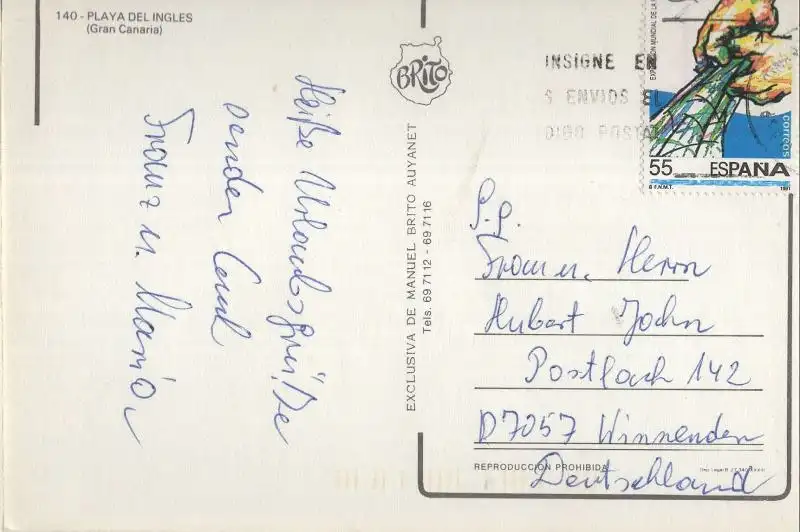 140 - PLAYA DEL INGLES
(Gran Canaria)
Heiße Urlaubsgrüße
senden Euch
Franz u. Maria
BRITO
EXCLUSIVA DE MANUEL BRITO AUYANET
Tels. 69 7112 - 69 7116
INSIGNE EN
S ENVIOS EL
DIGO POSTAL
CORREOS
55 ESPAÑA
F.N.M.T. 1991
Frau u. Herrn
Hubert John
Postfach 142
D7057 Winnenden
Deutschland
REPRODUCCION PROHIBIDA